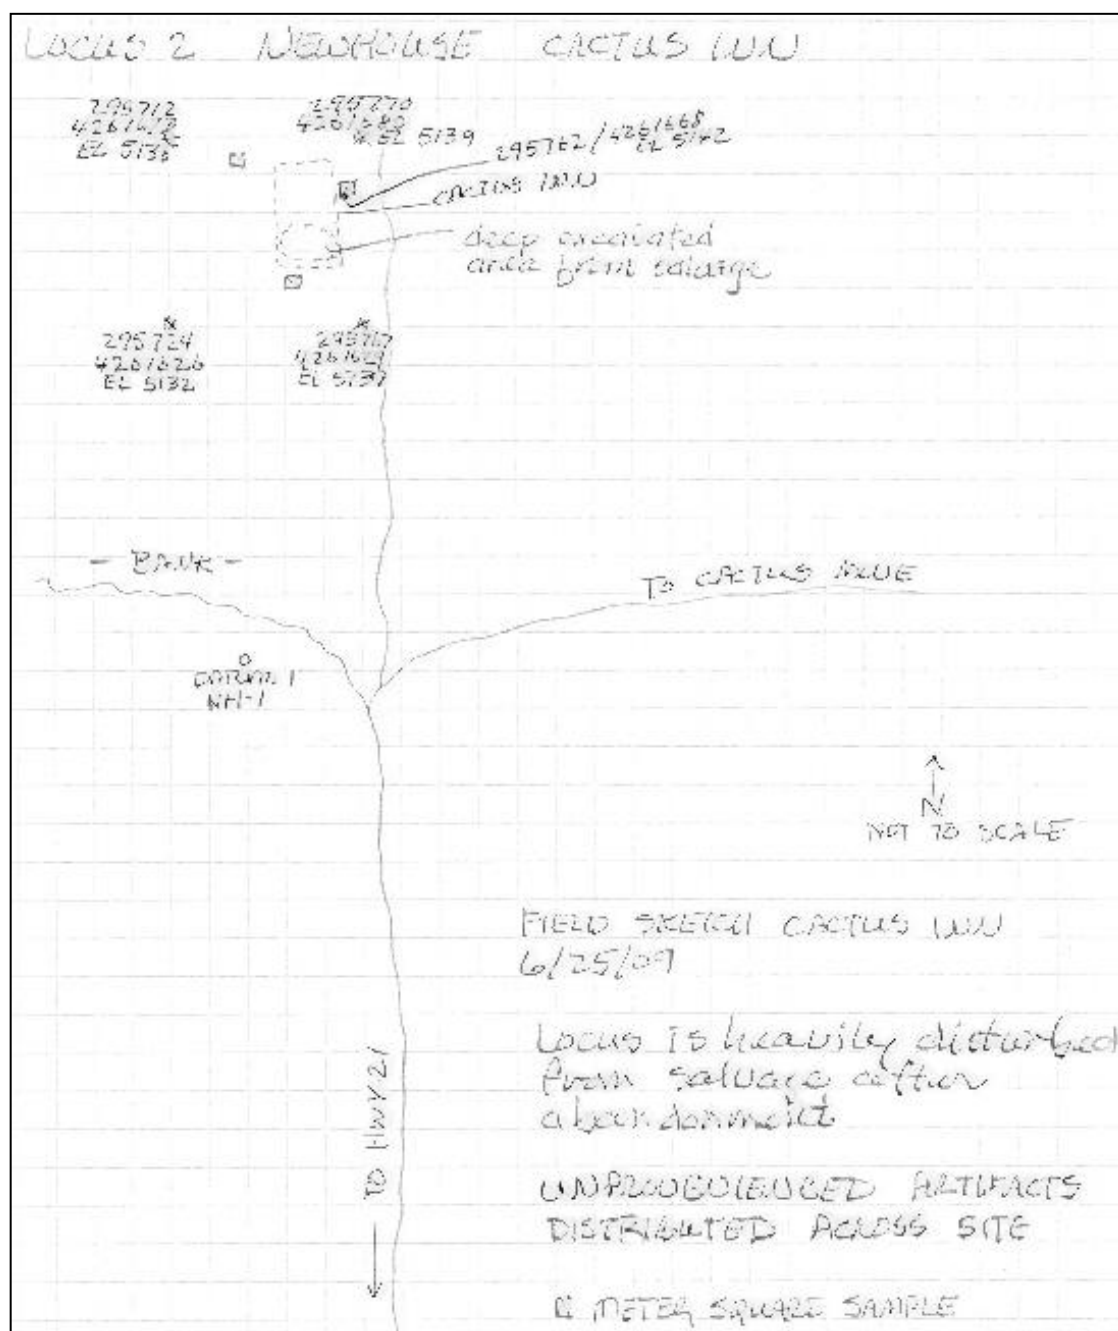 LOCUS 2 NEWHOUSE CACTUS INN
295712
EL 5136
295770
4261680
EL 5139
295762 / 4261668
EL 5142
CACTUS INN
deep excavated
area from salvage
295724
4261626
EL 5132
295767
EL 5137
- BANK -
TO CACTUS MINE
DATUM 1
NH-1
N
NOT TO SCALE
FIELD SKETCH CACTUS INN
6/25/09
Locus is heavily disturbed
from salvage after
abandonment
TO HWY 21
UNPROVENIENCED ARTIFACTS
DISTRIBUTED ACROSS SITE
METER SQUARE SAMPLE